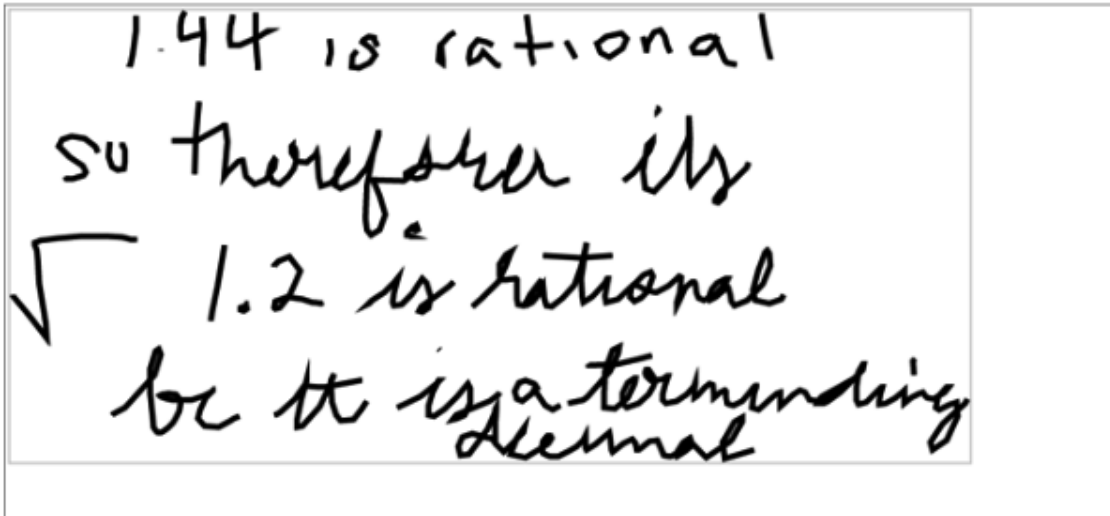 1.44 is rational
so therefore its
√ 1.2 is rational
bc it is a terminding
decimal